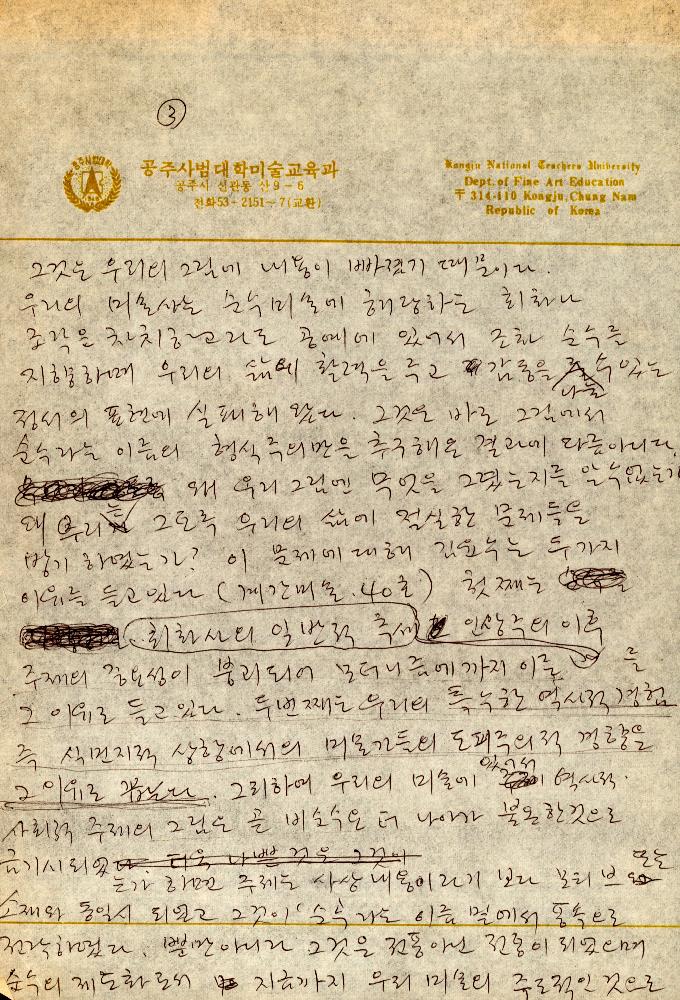 ③
공주사범대학미술교육과
공주시 신관동 산 9-6
전화53-2151~7(교환)
Kongju National Teachers University
Dept. of Fine Art Education
〒 314-110 Kongju, Chung Nam
Republic of Korea
그것은 우리의 그림에 내용이 빠졌기 때문이다.
우리의 미술사는 순수미술에 해당하는 회화나
조각은 차치하고라도 공예에 있어서 조차 순수를
지향하며 우리의 삶에 활력을 주고 감동을 줄 수 있는
정서의 표현에 실패해 왔다. 그것은 바로 그림에서
순수라는 이름의 형식주의만을 추구해온 결과에 다름아니다.
왜 우리 그림엔 무엇을 그렸는지를 알 수 없는가
왜 우리는 그토록 우리의 삶에 절실한 문제들을
방기 하였는가? 이 문제에 대해 김윤수는 두가지
이유를 들고 있다 (계간미술. 40호) 첫째는
회화사의 일반적 추세 인상주의 이후
주제의 중요성이 붕괴되어 모더니즘에까지 이름 을
그 이유로 들고 있다. 두번째는 우리의 특수한 역사적 경험
즉 식민지적 상황에서의 미술가들의 도피주의적 경향을
그 이유로 꼽는다. 그리하여 우리의 미술에 있어서 역사적.
사회적 주제의 그림은 곧 비순수요 더 나아가 불온한것으로
금기시되었다. 더욱 나쁜 것은 그것이
하면 주제는 사상 내용이라기 보다 모티브 또는
소재와 동일시 되었고 그것이 '순수'라는 이름 밑에서 풍속으로
전락하였다. 뿐만아니라 그것은 전통아닌 전통이 되었으며
순수의 제도화로서 지금까지 우리 미술의 주도적인 것으로